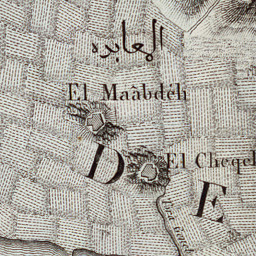 المعابده
El Maâbdéh
D
El Cheqel
E